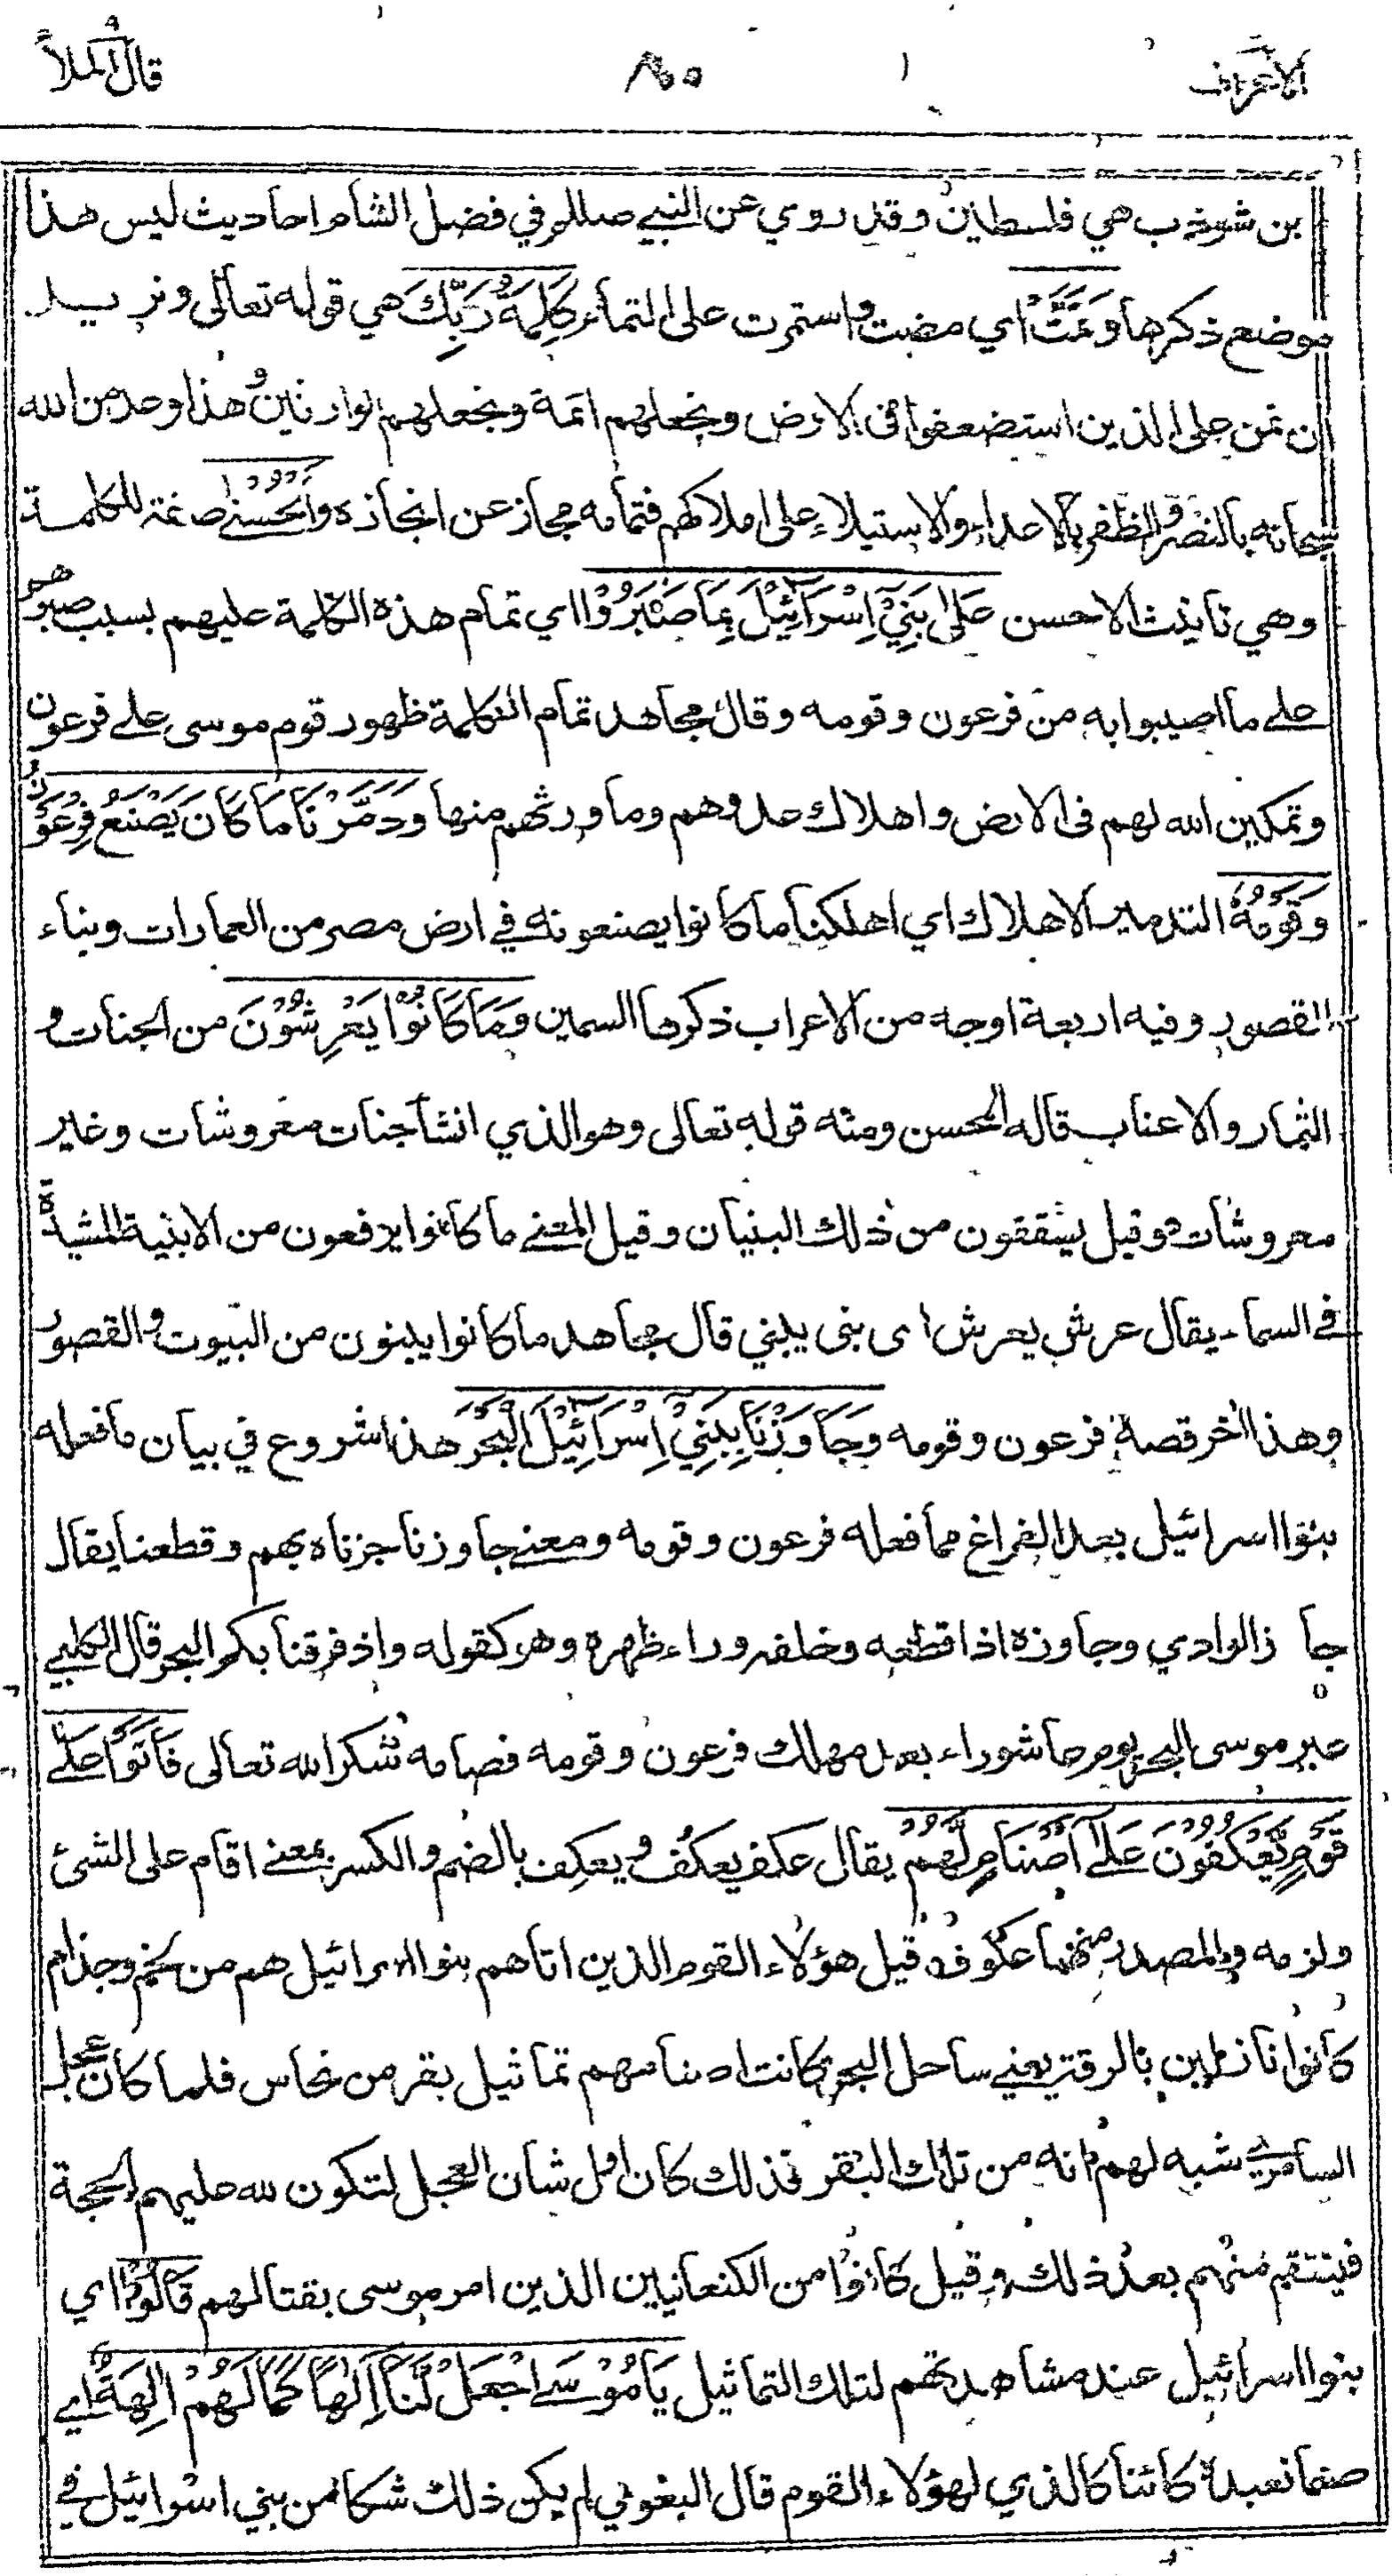 الاعراف
قال الملأ
بن شوذب هي فلسطين وقد روي عن النبي صللم في فضل الشام احاديث ليس هذا
موضع ذكرها وَتَمَّتْ اي مضت واستمرت على التمام كَلِمَةُ رَبِّكَ هي قوله تعالى ونريد
ان نمن على الذين استضعفوا فى الارض ونجعلهم ائمة ونجعلهم الوارثين وهذا وعد من الله
سبحانه بالنصر والظفر بالاعداء والاستيلاء على املاكهم فتمامه مجاز عن انجازه وَالحُسْنٰى صفة للكلمة
وهي تانيث الاحسن عَلىٰ بَنِيْ اِسْرَآئِيْلَ بِمَا صَبَرُوْا اي تمام هذه الكلمة عليهم بسبب صبرهم
على ما اصيبوا به من فرعون وقومه وقال مجاهد تمام الكلمة ظهور قوم موسى على فرعون
وتمكين الله لهم فى الارض واهلاك عدوهم وما ورثهم منها وَدَمَّرْنَا مَا كَانَ يَصْنَعُ فِرْعَوْنُ
وَقَوْمُهٗ التدمير الاهلاك اي اهلكنا ما كانوا يصنعونه في ارض مصر من العمارات وبناء
القصور وفيه اربعة اوجه من الاعراب ذكرها السمين وَمَا كَانُوْا يَعْرِشُوْنَ من الجنات و
الثمار والاعناب قاله الحسن ومنه قوله تعالى وهو الذي انشأ جنات معروشات وغير
معروشات وقيل يسقفون من ذلك البنيان وقيل المعنى ما كانوا يرفعون من الابنية المشيدة
في السماء يقال عرش يعرش اى بنى يبني قال مجاهد ما كانوا يبنون من البيوت والقصور
وهذا اٰخر قصة فرعون وقومه وَجَاوَزْنَا بِبَنِيْ اِسْرَآئِيْلَ الْبَحْرَ هذا شروع في بيان ما فعله
بنوا اسرائيل بعد الفراغ مما فعله فرعون وقومه ومعنى جاوزنا جزناه بهم وقطعنا يقال
جاز الوادي وجاوزه اذا قطعه وخلفه وراء ظهره وهو كقوله واذ فرقنا بكم البحر قال الكلبي
عبر موسى البحر يوم عاشوراء بعد مهلك فرعون وقومه فصامه شكرا لله تعالى فَاَتَوْا عَلٰى
قَوْمٍ يَّعْكُفُوْنَ عَلٰٓى اَصْنَامٍ لَّهُمْ يقال عكف يعكُف ويعكِف بالضم والكسر بمعنى اقام على الشئ
ولزمه والمصدر منهما عكوف وقيل هؤلاء القوم الذين اتاهم بنوا اسرائيل هم من لخم وجذام
كانوا نازلين بالرقة يعني ساحل البحر كانت اصنامهم تماثيل بقر من نحاس فلما كان عجل
السامري شبه لهم انه من تلك البقر فذلك كان اول شان العجل لتكون لله عليهم الحجة
فينتقم منهم بعد ذلك وقيل كانوا من الكنعانيين الذين امر موسى بقتالهم قَالُوْا اي
بنوا اسرائيل عند مشاهدتهم لتلك التماثيل يَا مُوْسَى اجْعَلْ لَّنَآ اِلٰهًا كَمَا لَهُمْ اٰلِهَةٌ اي
صنما نعبده كائنا كالذي لهؤلاء القوم قال البغوي لم يكن ذلك شكا من بني اسرائيل في